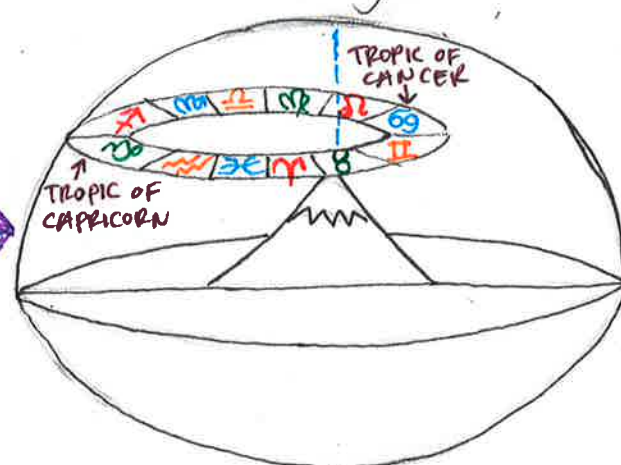 TROPIC OF
CANCER
♐ ♏ ♎ ♍ ♌ ♋
♑ ♒ ♓ ♈ ♉ ♊
TROPIC OF
CAPRICORN